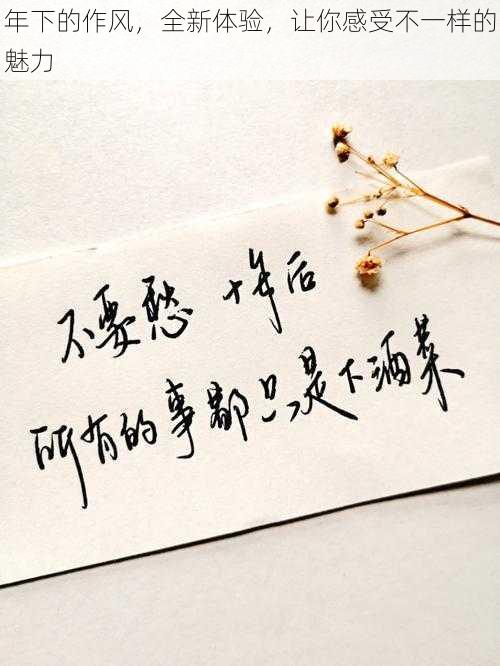 年下的作风，全新体验，让你感受不一样的
魅力
不要愁 十年后
所有的事都只是下酒菜